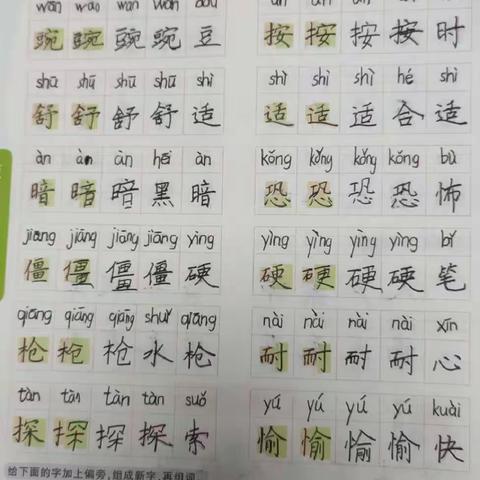 wān wān wān wān dòu
豌 豌 豌 豌 豆
àn àn àn àn shí
按 按 按 按 时
shū shū shū shū shì
舒 舒 舒 舒 适
shì shì shì hé shì
适 适 适 合 适
àn àn àn hēi àn
暗 暗 暗 黑 暗
kǒng kǒng kǒng kǒng bù
恐 恐 恐 恐 怖
jiāng jiāng jiāng jiāng yìng
僵 僵 僵 僵 硬
yìng yìng yìng yìng bǐ
硬 硬 硬 硬 笔
qiāng qiāng qiāng shuǐ qiāng
枪 枪 枪 水 枪
nài nài nài nài xīn
耐 耐 耐 耐 心
tàn tàn tàn tàn suǒ
探 探 探 探 索
yú yú yú yú kuài
愉 愉 愉 愉 快
给下面的字加上偏旁,组成新字,再组词